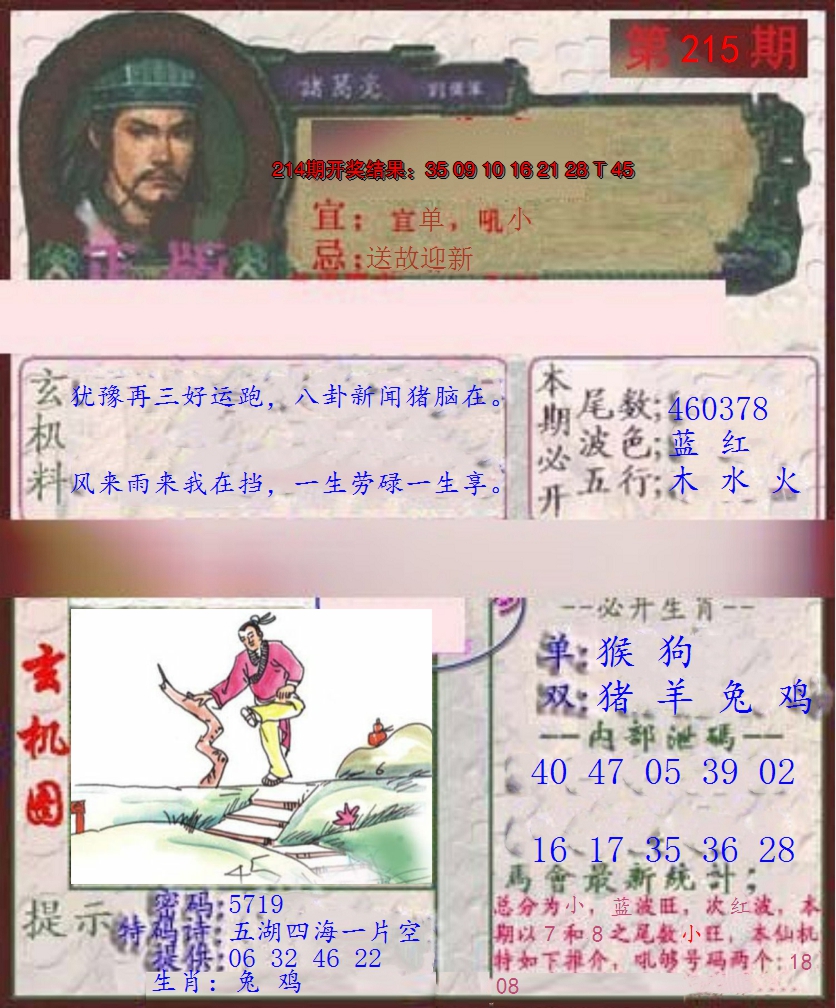 第 215 期
諸葛亮
214期开奖结果：35 09 10 16 21 28 T 45
宜：宜单，吼小
忌：送故迎新
正版
玄机料
犹豫再三好运跑，八卦新闻猪脑在。
风来雨来我在挡，一生劳碌一生享。
本期必开
尾数;460378
波色;蓝 红
五行;木 水 火
玄机图
6
45
--必开生肖--
单:猴 狗
双:猪 羊 兔 鸡
—内部泄碼—
40 47 05 39 02
16 17 35 36 28
馬會最新統計;
总分为小，蓝波旺，次红波，本
期以7和8之尾数小旺，本仙机
特如下推介，吼够号码两个:18
08
提示
密码:5719
特码诗:五湖四海一片空
提供:06 32 46 22
生肖：兔 鸡